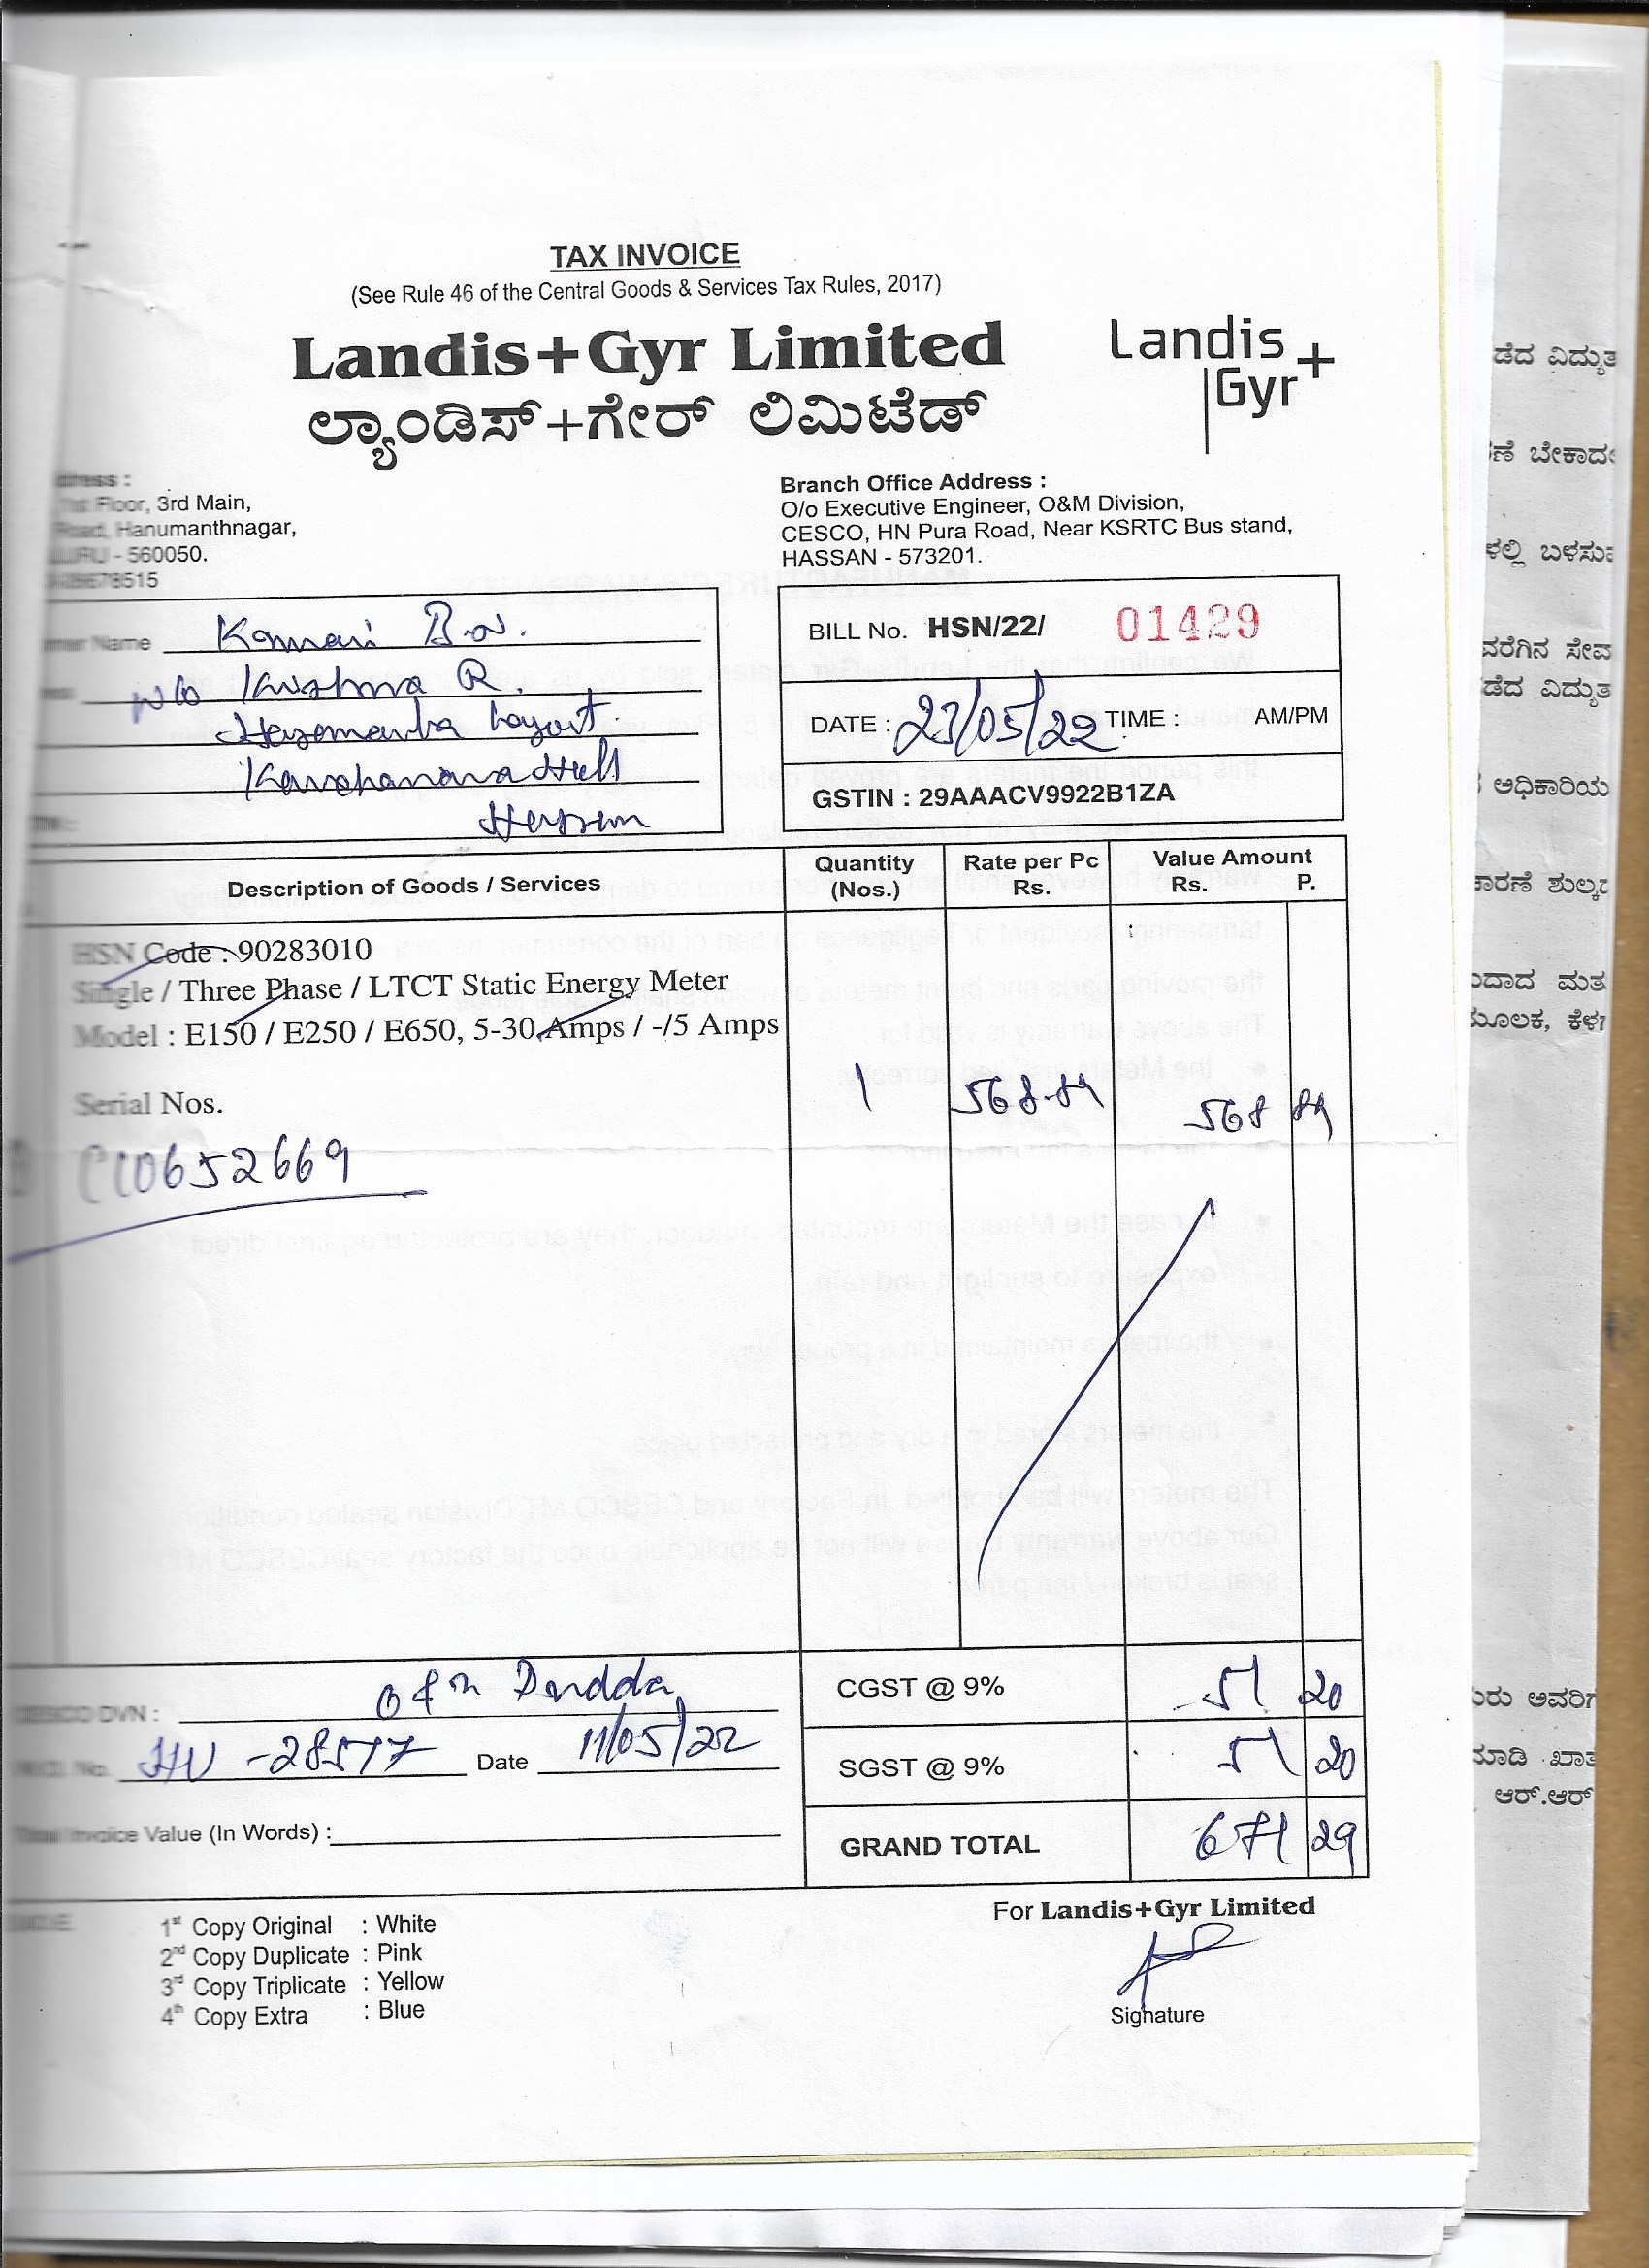 TAX INVOICE
(See Rule 46 of the Central Goods & Services Tax Rules, 2017)
Landis+Gyr Limited
ಲ್ಯಾಂಡಿಸ್+ಗೇರ್ ಲಿಮಿಟೆಡ್
Landis
Gyr+
Floor, 3rd Main,
Road, Hanumanthnagar,
- 560050.
Branch Office Address :
O/o Executive Engineer, O&M Division,
CESCO, HN Pura Road, Near KSRTC Bus stand,
HASSAN - 573201.
Name
w/o Krishna R.
Layout
BILL No. HSN/22/ 01429
DATE : 23/05/22 TIME : AM/PM
GSTIN : 29AAACV9922B1ZA
Description of Goods / Services
Quantity (Nos.)
Rate per Pc Rs.
Value Amount Rs. P.
HSN Code : 90283010
Single / Three Phase / LTCT Static Energy Meter
Model : E150 / E250 / E650, 5-30 Amps / -/5 Amps
1 568.89 568 89
Serial Nos.
0652669
DVN :
CGST @ 9% 51 20
-28517 Date 11/05/22
SGST @ 9% 51 20
Invoice Value (In Words) :
GRAND TOTAL 671 29
1st Copy Original : White
2nd Copy Duplicate : Pink
3rd Copy Triplicate : Yellow
4th Copy Extra : Blue
For Landis+Gyr Limited
Signature
ಡೆದ ವಿದ್ಯುತ
ಬೇಕಾದ
ಬಳಸು
ವರೆಗಿನ ಸೇವ
ಡೆದ ವಿದ್ಯುತ
ಅಧಿಕಾರಿಯ
ಕಾರಣೆ ಶುಲ್ಕ
ಮತ
ಮೂಲಕ, ಕೆಳ
ಅವರಿಗ
ಮಾಡಿ ಖಾತ
ಆರ್.ಆರ್